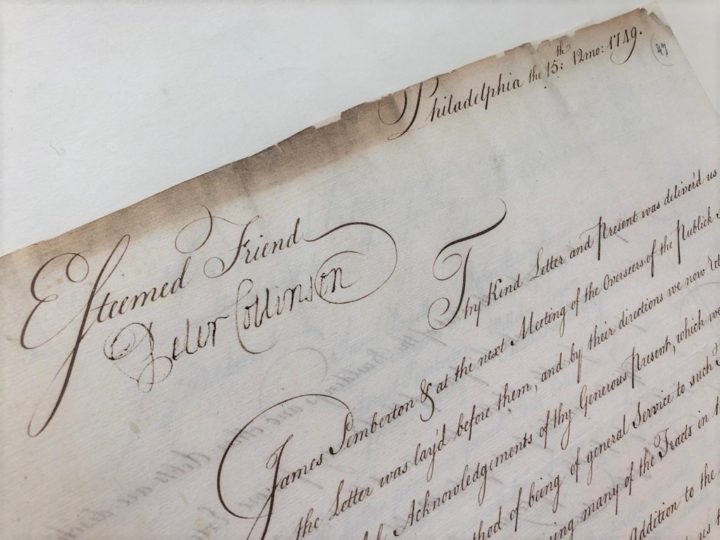 47
Philadelphia the 15th: 12mo: 1749.
Esteemed Friend
Peter Collinson
Thy Kind Letter and Present was deliver'd us
James Pemberton & at the next Meeting of the Overseers of the Publick
the Letter was lay'd before them, and by their directions we now
Acknowledgements of thy Generous Present, which we
of being of general Service to such
many of the Tracts in
Addition to the